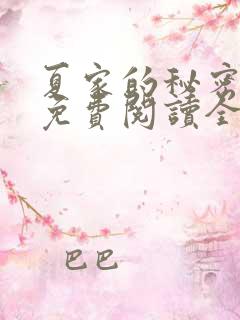 夏家的秘密
免費閱讀全
巴巴